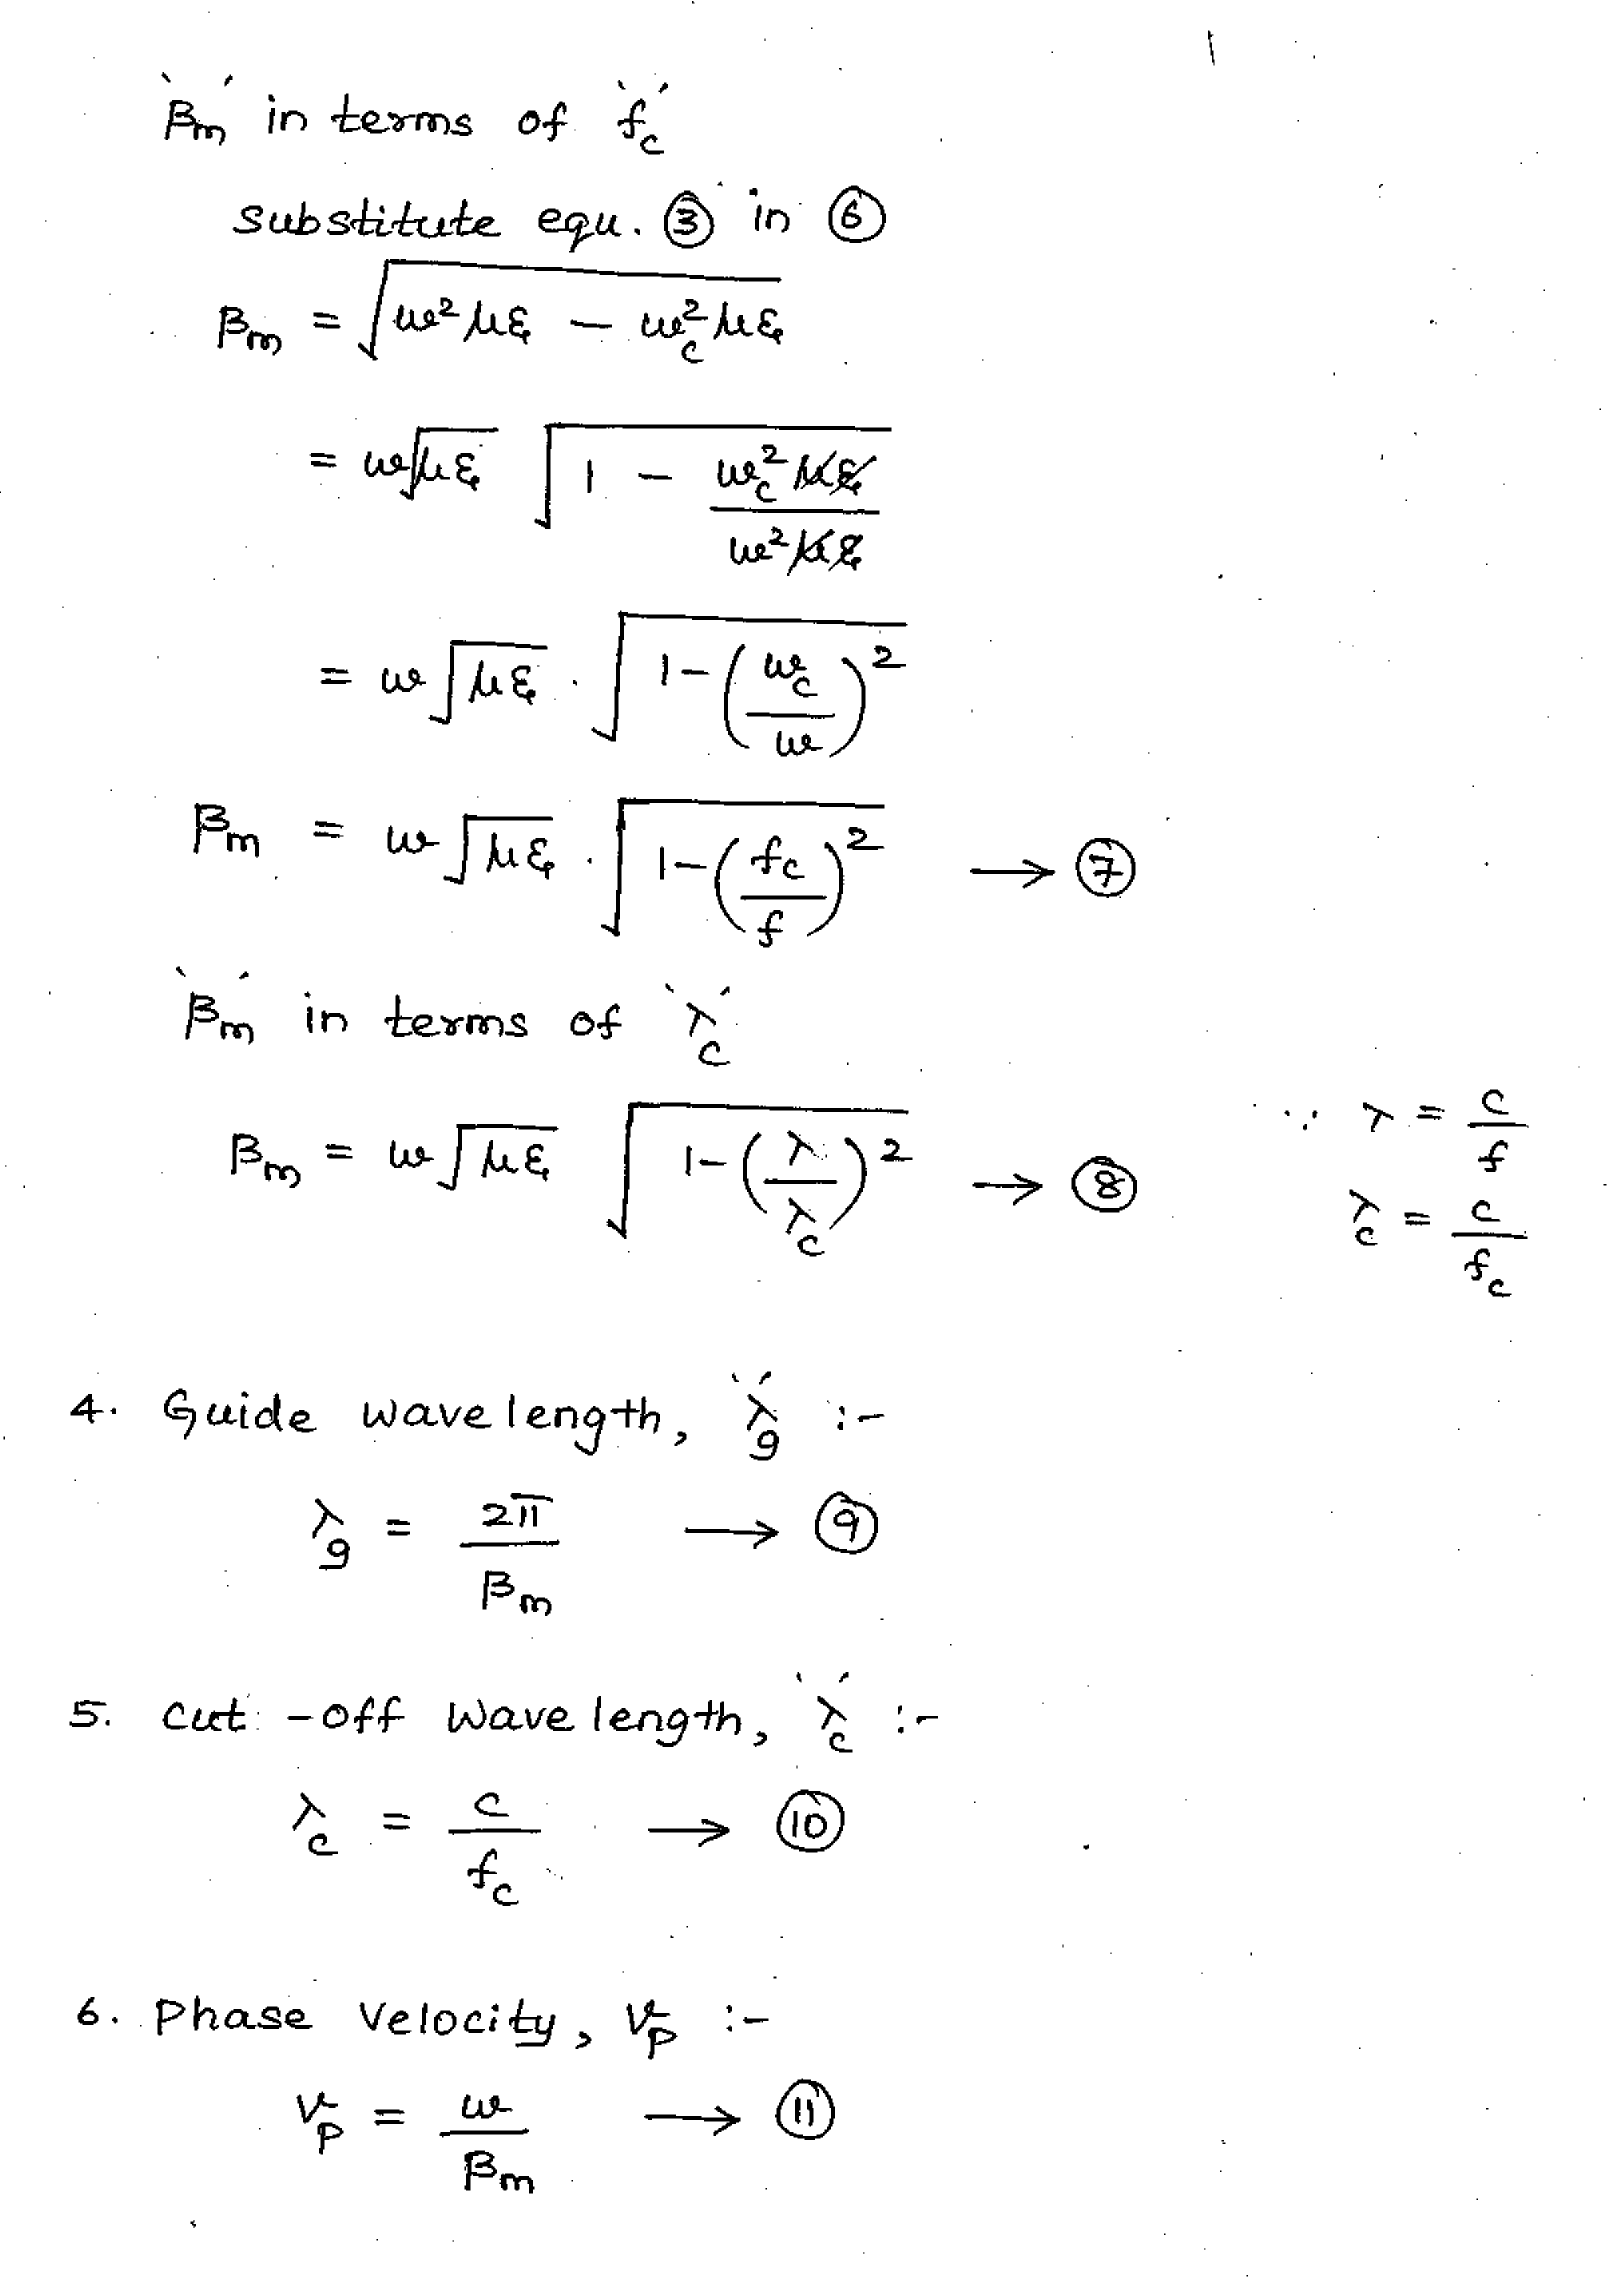 `βm´ in terms of `fc´
substitute equ. ③ in ⑥
βm = √(ω²με − ωc²με)
= ω√με √(1 − ωc²με / ω²με)
= ω√με · √(1−(ωc/ω)²)
βm = ω√με · √(1−(fc/f)²) → ⑦
`βm´ in terms of `λc´
βm = ω√με √(1−(λ/λc)²) → ⑧
∵ λ = c/f
λc = c/fc
4. Guide wavelength, `λg´ :-
λg = 2π/βm → ⑨
5. cut -off wavelength, `λc´ :-
λc = c/fc → ⑩
6. Phase Velocity, vp :-
vp = ω/βm → ⑪